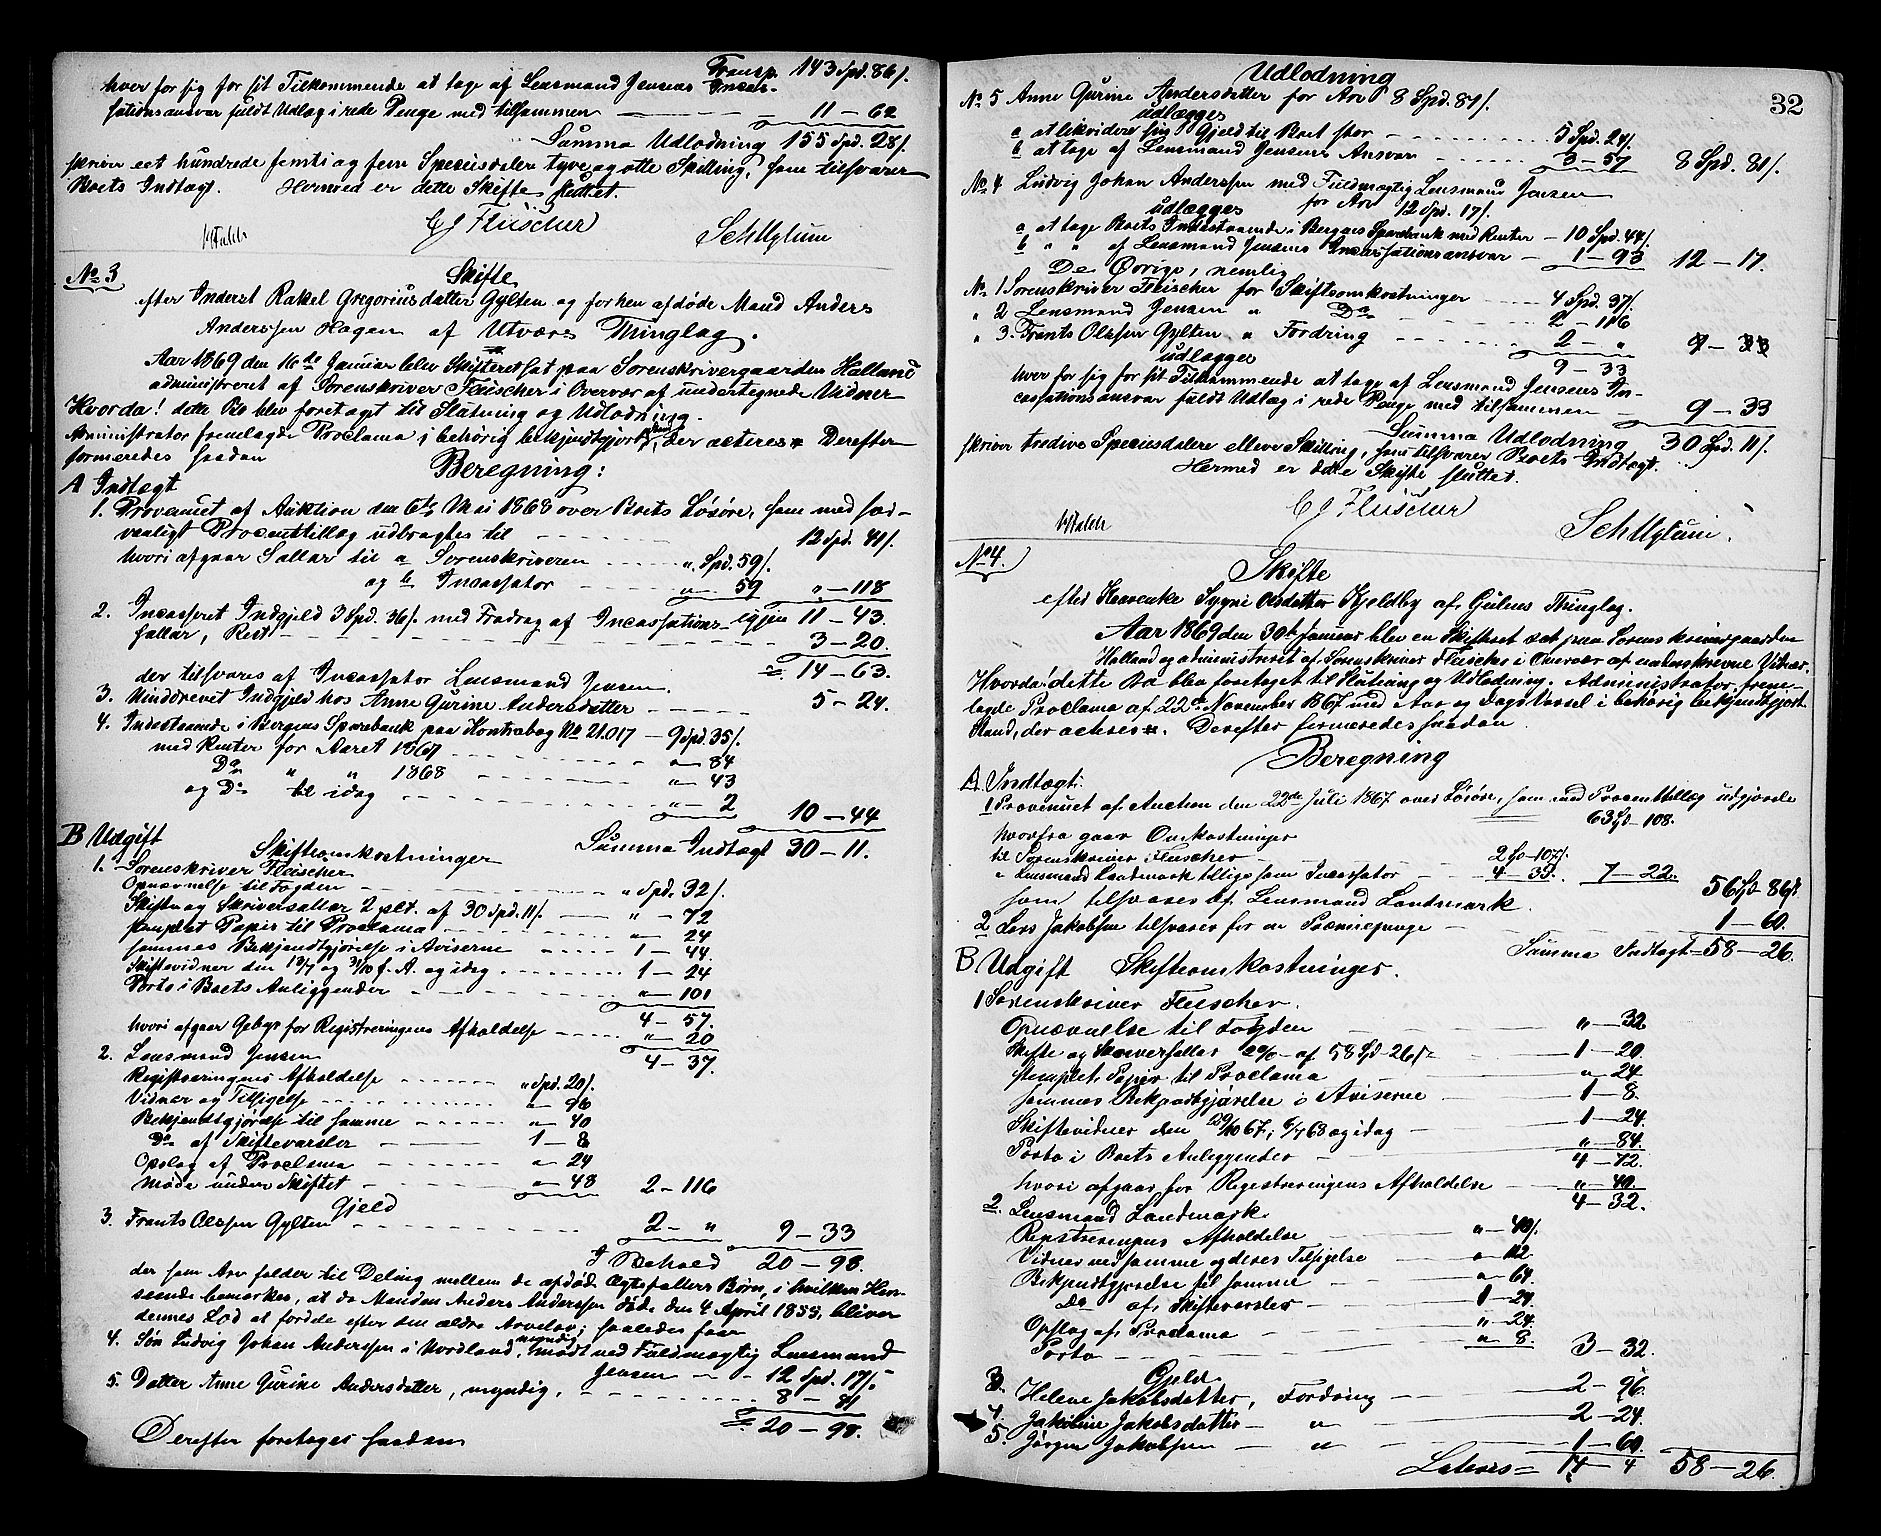 Transp. 143 Spd. 86/.
hver for sig for sit Tilkommende at tage af Lensmand Jensens Incas-
sationsansvar fuldt Udlæg i rede Penge med tilsammen 11 — 62
Summa Udlodning 155 Spd. 28/.
skriver eet hundrede femti og fem Speciesdaler tyve og otte Skilling, som tilsvarer
Boets Indtægt. Hermed er dette Skifte sluttet.
CJ Fleischer
No 3 Skifte
efter Inderst Rakel Gregoriusdatter Gylten og forhen afdøde Mand Anders
Anderssen Hagen af Utværs Thinglag.
Aar 1869 den 16de Januar blev Skifteret sat paa Sorenskrivergaarden Holland
administreret af Sorenskriver Fleischer i Overvær af undertegnede Vidner
Hvorda! dette Bo blev foretaget til Slutning og Udlodning.
Administrator fremlagde Proclama i behørig bekjendtgjort Stand, der acteres. Derefter
formeredes saadan
Beregning:
A Indtægt
1. Provenuet af Auktion den 6te Mai 1868 over Boets Løsøre, som med sæd-
vanligt Procenttillæg udbragtes til 12 Spd. 41/.
hvori afgaar Sallær til a Sorenskriveren " Spd. 59/.
og b Incassator " — 59 " — 118
igjen 11 — 43.
2. Incasseret Indgjeld 3 Spd. 36/. med Fradrag af Incassations-
sallær, Rest 3 — 20.
= 14 — 63.
der tilsvares af Incassator Lensmand Jensen.
3. Uinddrevet Indgjeld hos Anne Gurine Andersdatter 5 — 24.
4. Indestaaende i Bergens Sparebank paa Kontrabog No 21.017 — 9 Spd. 35/.
med Renter for Aaret 1867 " — 84
Do " " 1868 " — 43
og Do til idag " — 2 10 — 44
Summa Indtægt 30 — 11.
B Udgift
Skifteomkostninger
1. Sorenskriver Fleischer
Opnævnelse til Fogden " Spd. 32/.
Skifte og Skriversallær 2 pCt. af 30 Spd. 11/. " — 72
stemplet Papir til Proclama " — 24
sammes Bekjendtgjørelse i Aviserne 1 — 44
Skiftevidner den 13/7 og 31/10 f. A. og idag 1 — 24
Porto i Boets Anliggender " — 101
4 — 57.
hvori afgaar Gebyr for Registreringens Afholdelse " — 20
4 — 37.
2. Lensmand Jensen
Registreringens Afholdelse " Spd. 20/.
Vidner og Tilsigelse " — 96
Bekjendtgjørelse til samme " — 40
Do af Skiftevarsler 1 — 8
Opslag af Proclama " — 24
Møde under Skiftet " — 48 2 — 116
Gjeld
3. Frants Olssen Gylten 2 — " 9 — 33
I Behold 20 — 98.
der som Arv falder til Deling mellem de afdøde Ægtefællers Børn, i hvilken Hen-
seende bemærkes, at da Manden Anders Anderssen døde den 4 April 1855, bliver
dennes Lod at fordele efter den ældre Arvelov; saaledes faar
4. Søn Ludvig Johan Anderssen i Nordland, myndig, mødt ved Fuldmægtig Lensmand
Jensen 12 Spd. 17/.
5. Datter Anne Gurine Andersdatter, myndig, 8 — 81
= 20 — 98.
Derefter foretages saadan
32
Udlodning
No 5 Anne Gurine Andersdatter for Arv 8 Spd. 81/.
udlægges
a at likvidere sin Gjeld til Boet stor 5 Spd. 24/.
b at tage af Lensmand Jensens Ansvar 3 — 57 8 Spd. 81/.
No 4 Ludvig Johan Anderssen med Fuldmægtig Lensmand Jensen
for Arv 12 Spd. 17/.
udlægges
a at tage Boets Indestaaende i Bergens Sparebank med Renter — 10 Spd. 44/.
b " " af Lensmand Jensens Incassationsansvar — 1 — 93 12 — 17.
De Øvrige, nemlig
No 1 Sorenskriver Fleischer for Skifteomkostninger 4 Spd. 37/.
" 2 Lensmand Jensen " Do 2 — 116
" 3. Frants Olssen Gylten " Fordring 2 — "
udlægges 9 — 33
hver for sig for sit Tilkommende at tage af Lensmand Jensens In-
cassationsansvar fuldt Udlæg i rede Penge med tilsammen 9 — 33
Summa Udlodning 30 Spd. 11/.
skriver tredive Speciesdalere elleve Skilling, som tilsvarer Boets Indtægt.
Hermed er dette Skifte sluttet.
CJ Fleischer
No 4.
Skifte
efter Huuskone Sygni Olsdatter Kjeldby af Gulens Thinglag.
Aar 1869 den 30te Januar blev en Skifteret sat paa Sorenskrivergaarden
Holland og administreret af Sorenskriver Fleischer i Overvær af underskrevne Vidner.
Hvorda: dette Bo blev foretaget til Slutning og Udlodning. Administrator frem-
lagde Proclama af 22de November 1867 med Aar og Dags Varsel i behørig bekjendtgjort
Stand, der acteres. Derefter formeredes saadan
Beregning
A Indtægt:
1 Provenuet af Auction den 22de Juli 1867 over Løsøre, som med Procenttillæg udgjorde
63 Spd — 108.
hvorfra gaar Omkostninger
til Sorenskriver Fleischer 2 Spd — 107/.
" Lensmand Landmark tilligesom Incassator 4 — 35. 7 — 22. 56 Spd 86/.
som tilsvares af Lensmand Landmark.
2 Lars Jakobsen tilsvarer for en Præmiepenge 1 — 60.
Summa Indtægt = 58 — 26.
B Udgift Skifteomkostninger.
1 Sorenskriver Fleischer.
Opnævnelse til Fogden " — 32
Skifte og Skriversallær 2% af 58 Spd 26/. 1 — 20.
stemplet Papir til Proclama " — 24
sammes Bekjendtgjørelse i Aviserne 1 — 8.
Skiftevidner den 29/10 67, 6/7 68 og idag 1 — 24.
Porto i Boets Anliggender " — 84.
4 — 72.
hvori afgaar for Registreringens Afholdelse " — 40.
4 — 32.
2. Lensmand Landmark.
Registreringens Afholdelse " — 40/.
Vidner ved samme og deres Tilsigelse " — 112
Bekjendtgjørelse til samme " — 64.
Do af Skiftevarsler 1 — 24.
Opslag af Proclama " — 24.
Porto " 8. 3 — 32.
Gjeld.
3. Helene Jakobsdatter, Fordring 2 — 96.
4. Jakobine Jakobsdatter " 2 — 24.
5. Jørgen Jakobsen " 1 — 60.
Lateres = 14 — 4 58 — 26.